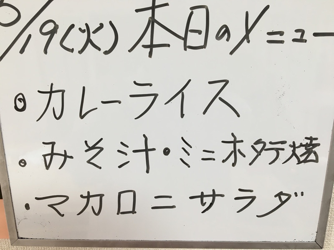 /19(火)本日のメニュー
・カレーライス
・みそ汁・ミニホタテ焼
・マカロニサラダ